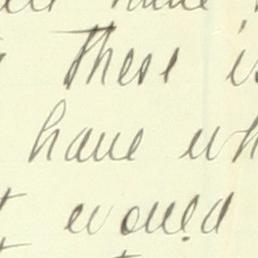 have
These is
have wh
would